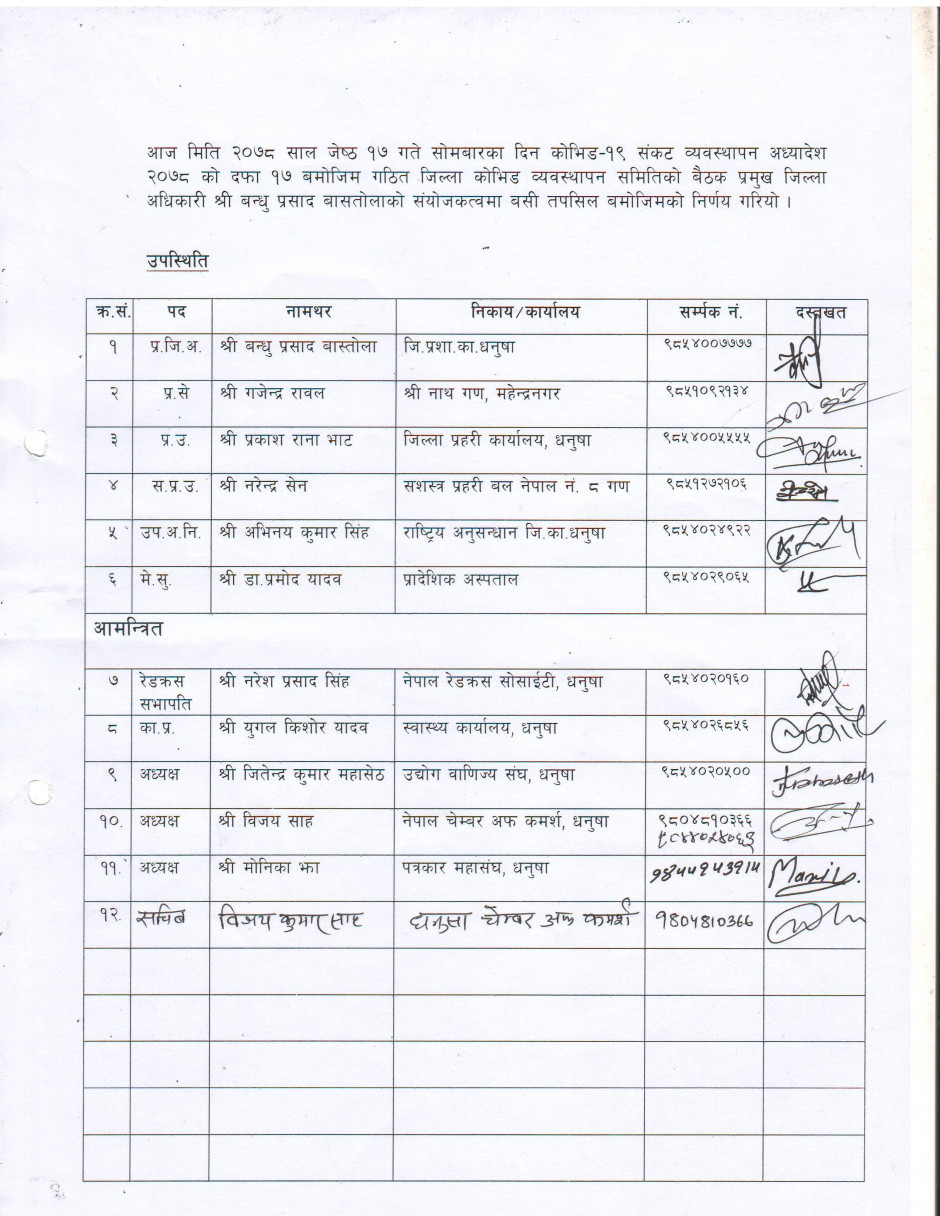 आज मिति २०७८ साल जेष्ठ १७ गते सोमबारका दिन कोभिड-१९ संकट व्यवस्थापन अध्यादेश
२०७८ को दफा १७ बमोजिम गठित जिल्ला कोभिड व्यवस्थापन समितिको बैठक प्रमुख जिल्ला
अधिकारी श्री बन्धु प्रसाद बासतोलाको संयोजकत्वमा बसी तपसिल बमोजिमको निर्णय गरियो ।
उपस्थिति
क्र.सं. पद नामथर निकाय/कार्यालय सर्म्पक नं. दस्तखत
१ प्र.जि.अ. श्री बन्धु प्रसाद बास्तोला जि.प्रशा.का.धनुषा ९८५४००७७७७
२ प्र.से श्री गजेन्द्र रावल श्री नाथ गण, महेन्द्रनगर ९८५१०९२१३४
३ प्र.उ. श्री प्रकाश राना भाट जिल्ला प्रहरी कार्यालय, धनुषा ९८५४००५५५५
४ स.प्र.उ. श्री नरेन्द्र सेन सशस्त्र प्रहरी बल नेपाल नं. ८ गण ९८५१२७२१०६
५ उप.अ.नि. श्री अभिनय कुमार सिंह राष्ट्रिय अनुसन्धान जि.का.धनुषा ९८५४०२४९२२
६ मे.सु. श्री डा.प्रमोद यादव प्रादेशिक अस्पताल ९८५४०२९०६५
आमन्त्रित
७ रेडक्रस श्री नरेश प्रसाद सिंह नेपाल रेडक्रस सोसाईटी, धनुषा ९८५४०२०१६०
सभापति
८ का.प्र. श्री युगल किशोर यादव स्वास्थ्य कार्यालय, धनुषा ९८५४०२६८५६
९ अध्यक्ष श्री जितेन्द्र कुमार महासेठ उद्योग वाणिज्य संघ, धनुषा ९८५४०२०५००
१०. अध्यक्ष श्री विजय साह नेपाल चेम्बर अफ कमर्श, धनुषा ९८०४८१०३६६
११. अध्यक्ष श्री मोनिका झा पत्रकार महासंघ, धनुषा
१२. सचिब विजय कुमार साह धनुसा चेम्बर अफ कमर्श 9804810366